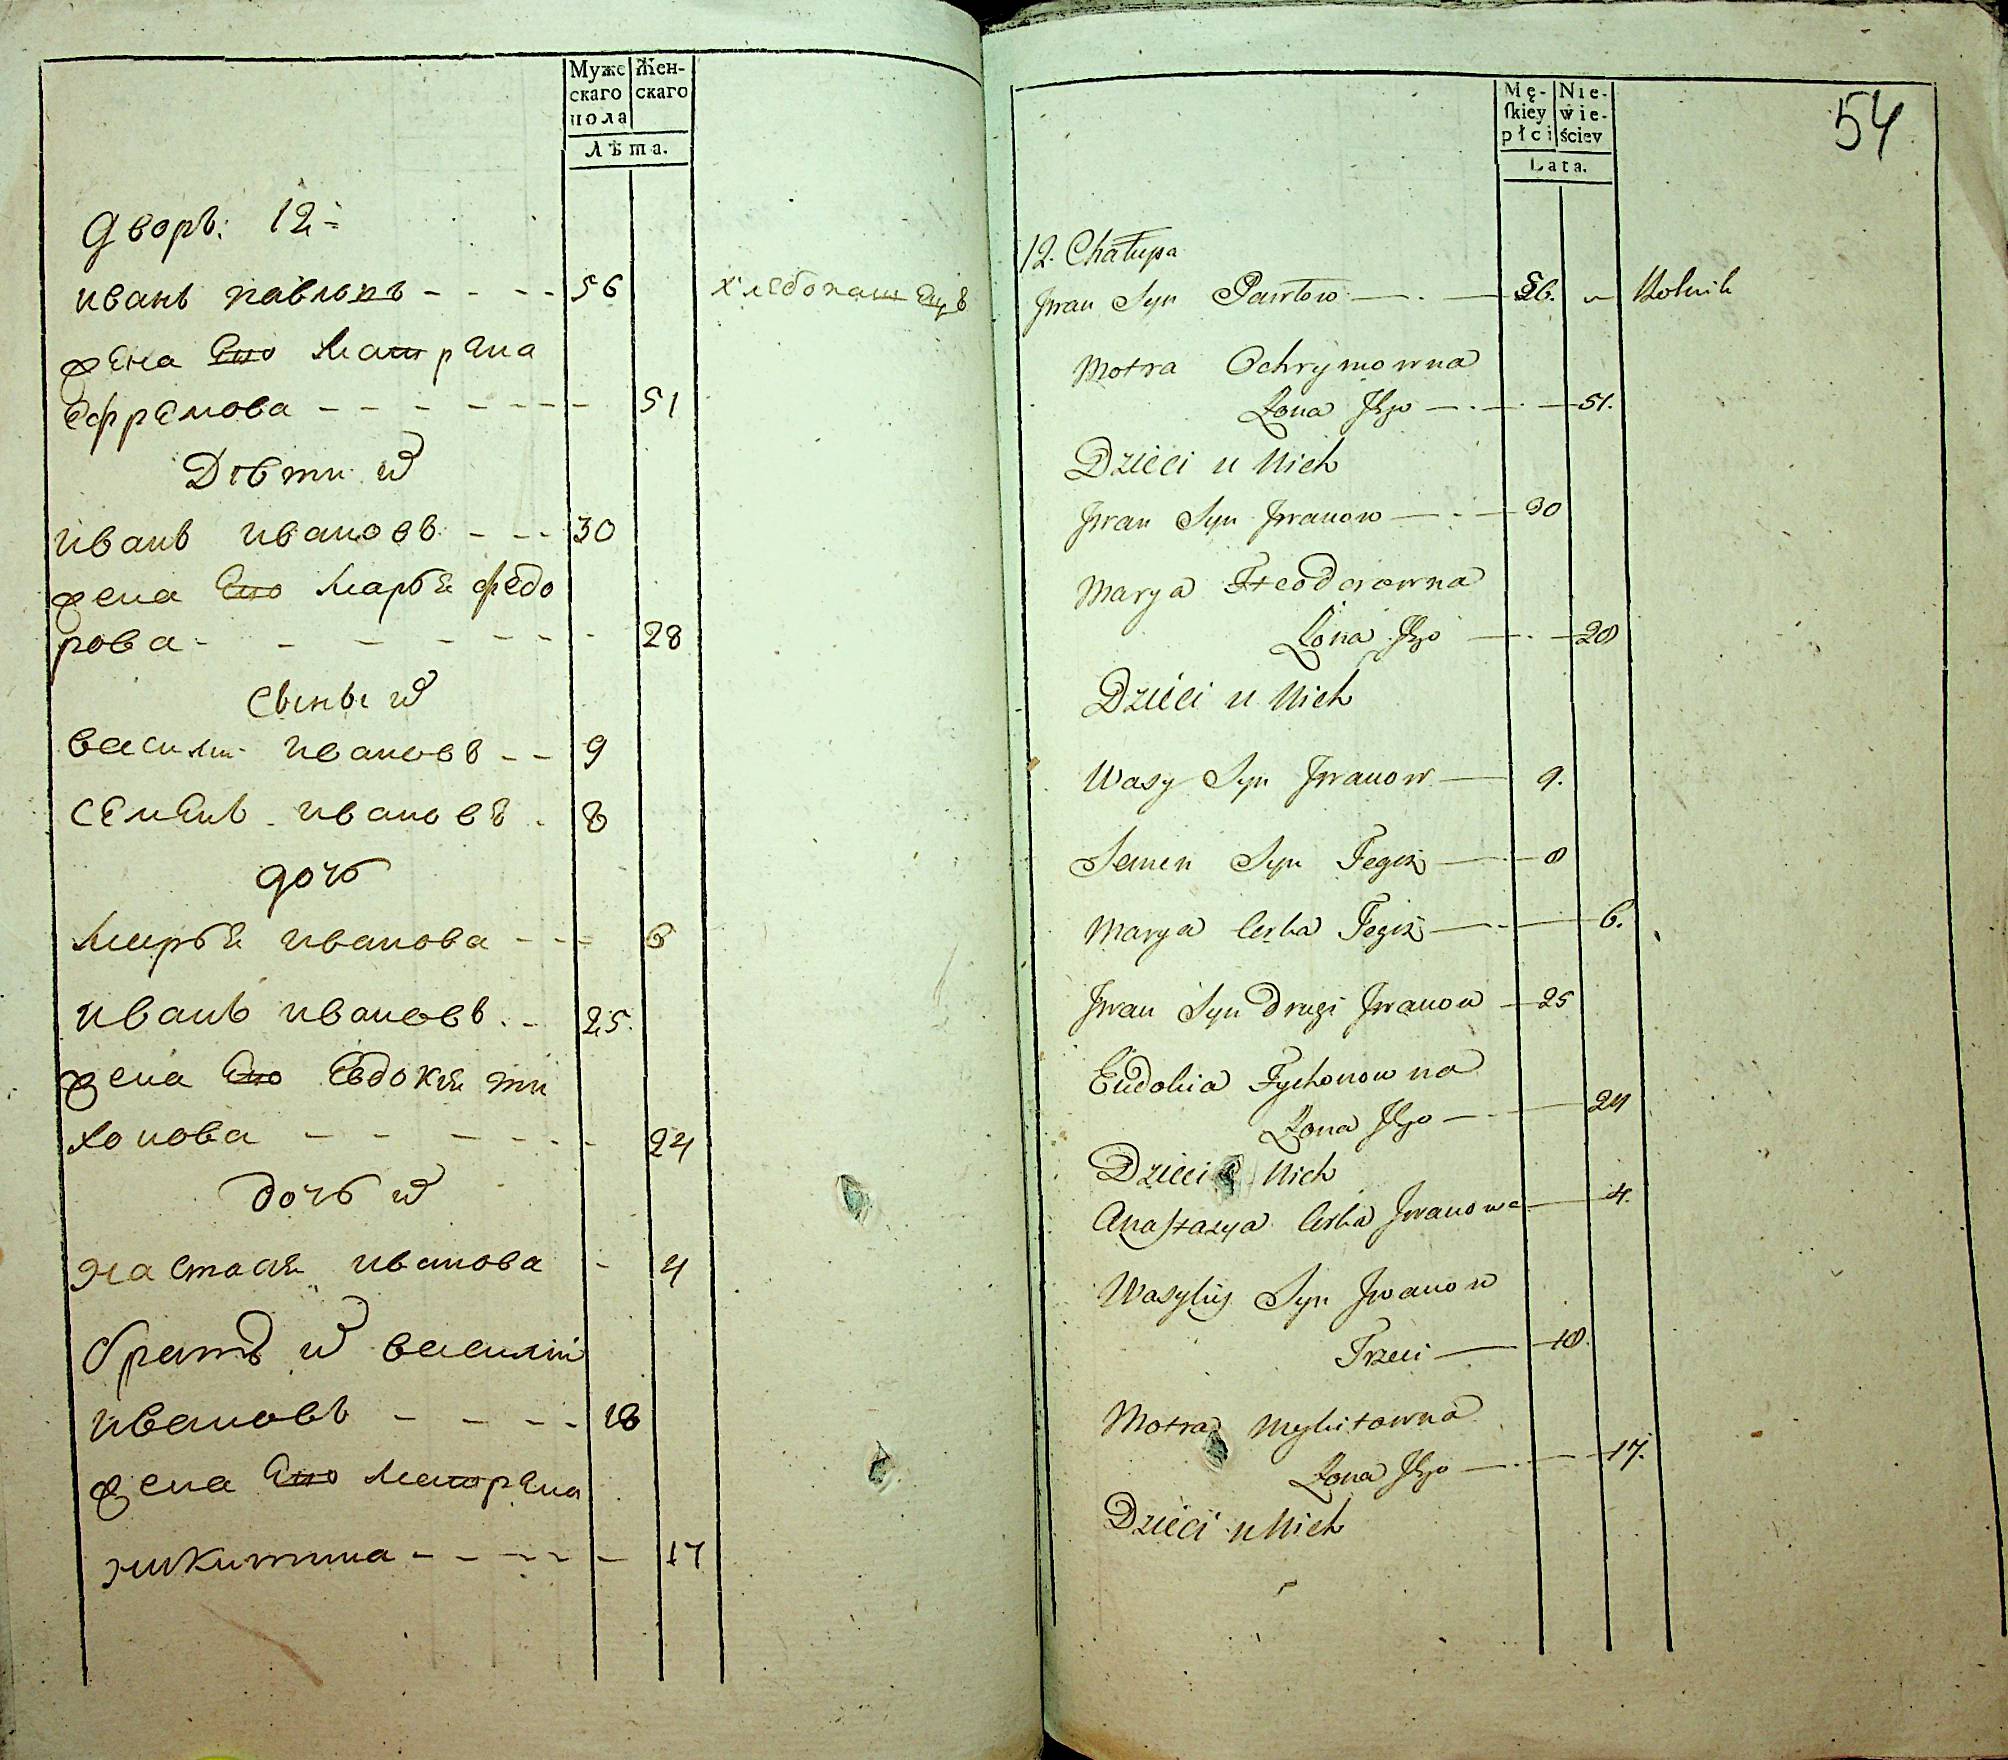 Муже
скаго
пола
Жен-
скаго
Лѣта.
Дворъ: 12
иванъ павловъ - - - - 56 хлебопашецъ
жена Его Матрена
Ефремова - - - - - - - 51
Дѣти ихъ
иванъ ивановъ - - - 30
жена Его Марья федо
рова - - - - - - - 28
сыны ихъ
василий ивановъ - - 9
семенъ ивановъ - 8
дочь
Марья иванова - - - 6
иванъ ивановъ - - 25
жена Его Евдокия ти
хонова - - - - - - 24
дочь ихъ
настася иванова - 4
братъ ихъ василий
ивановъ - - - - 18
жена Его Матрена
никитина - - - - - 17
Mę-
ſkiey
płci
Nie-
wie-
ściey
Lata.
54
12. Chałupa
Jwan Syn Pawłow — . — 56. Rolnik
Motra Ochrymowna
Żona Jego — . — . — 51.
Dzieci u Nich
Jwan Syn Jwanow — . — 30
Marya Fteodorowna
Żona Jego — . — 28
Dzieci u Nich
Wasy Syn Jwanow — 9.
Semen Syn Tegoż — . — 8
Marya Corka Tegoż — . — 6.
Jwan Syn Drugi Jwanow — 25
Eudokia Tychonowna
Żona Jego — . — 24
Dzieci u Nich
Anastazya Corka Jwanowa — 4.
Wasyliy Syn Jwanow
Trzeci — 18.
Motra Mykitowna
Żona Jego — . — 17.
Dzieci u Nich